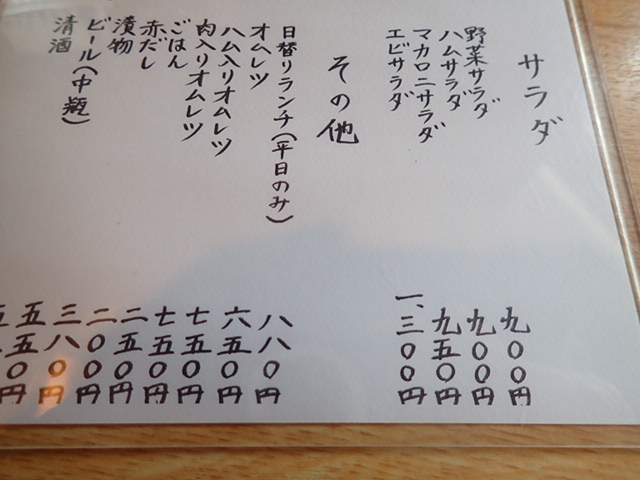 サラダ
野菜サラダ 九〇〇円
ハムサラダ 九〇〇円
マカロニサラダ 九五〇円
エビサラダ 一、三〇〇円
その他
日替りランチ(平日のみ) 八八〇円
オムレツ 六五〇円
ハム入りオムレツ 七五〇円
肉入りオムレツ 七五〇円
ごはん 二五〇円
赤だし 二〇〇円
漬物 三八〇円
ビール(中瓶) 五五〇円
清酒